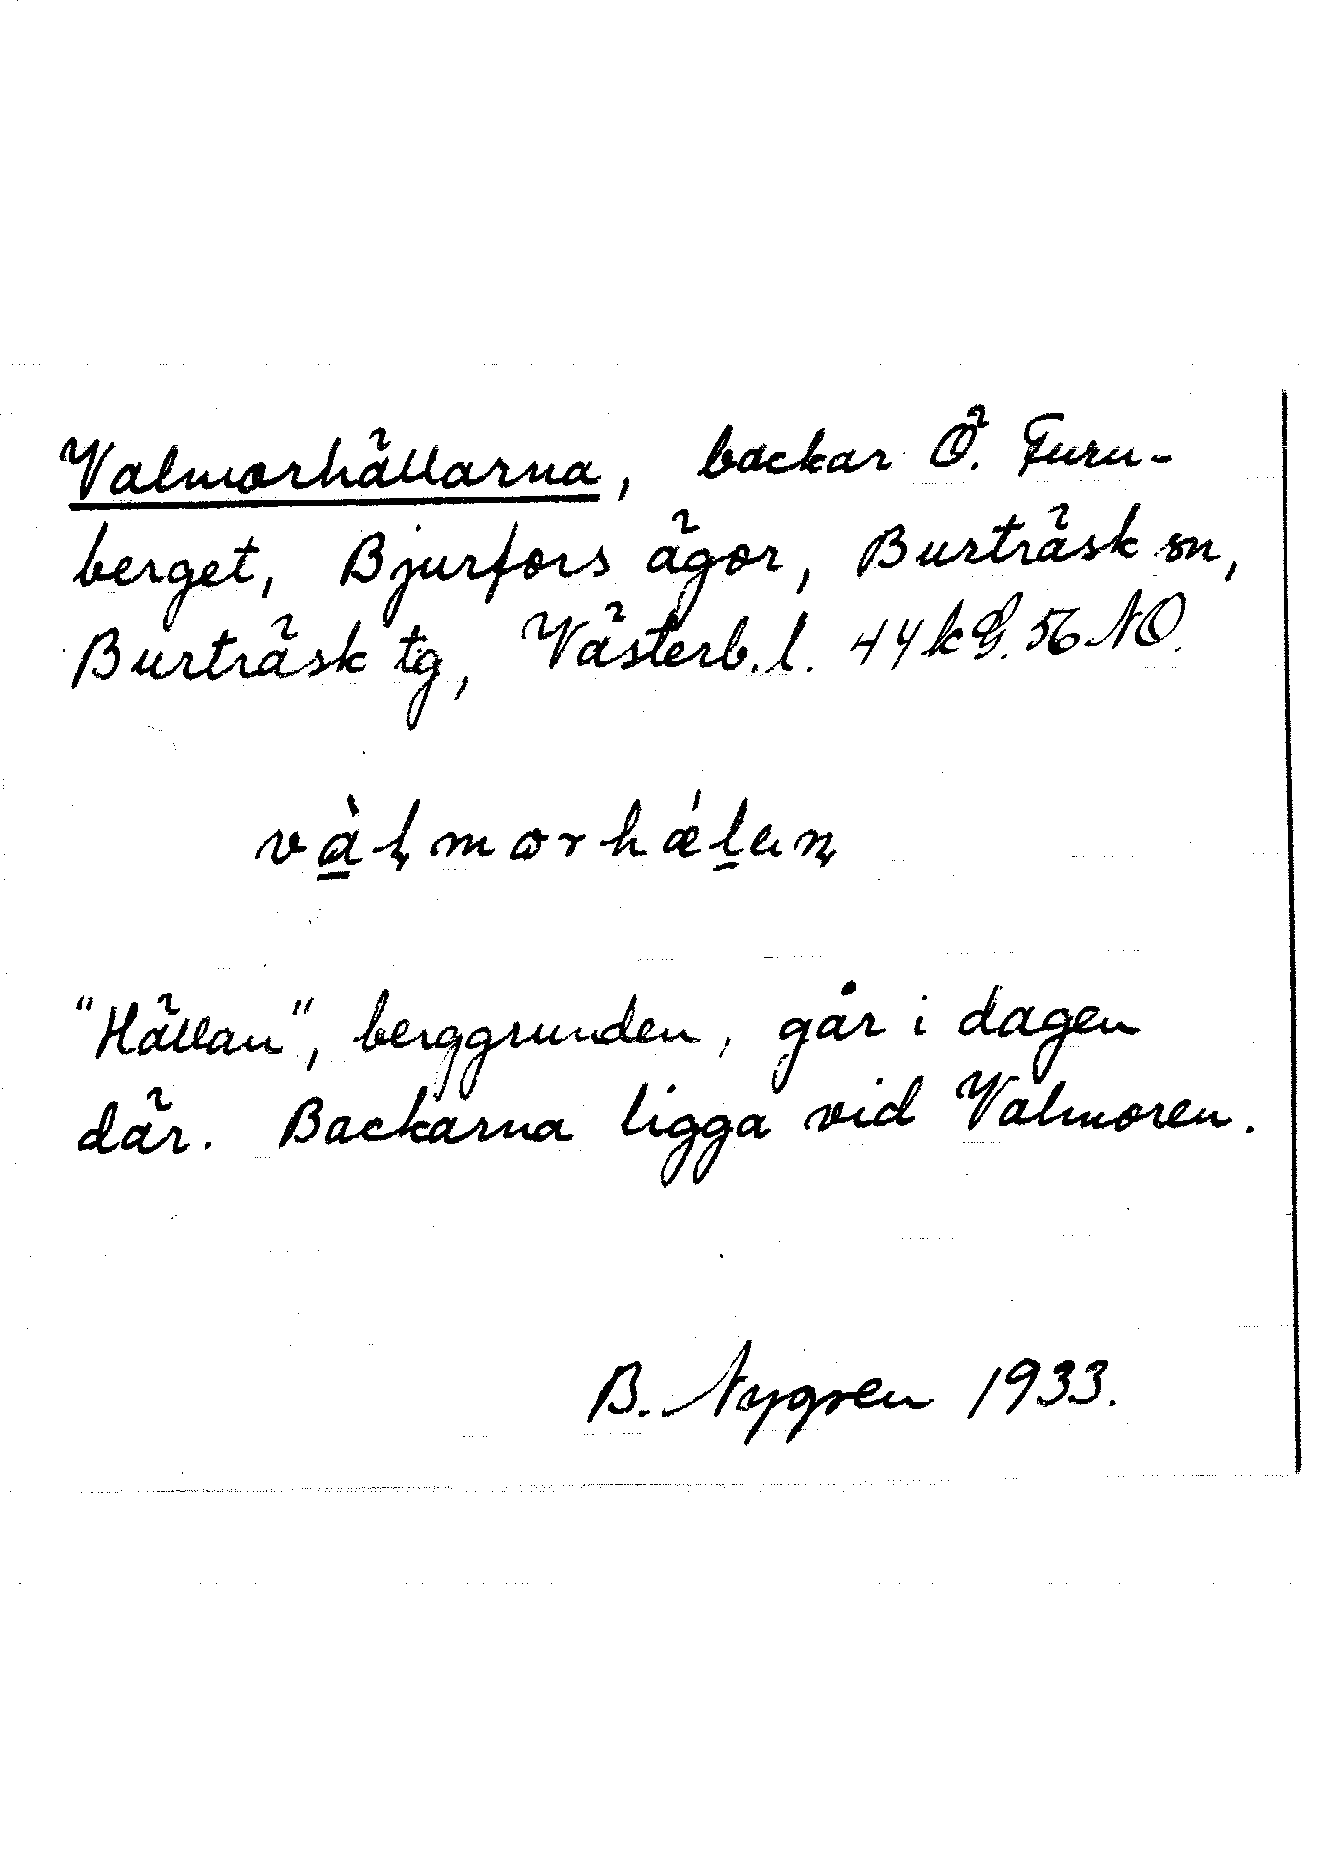 Valmorhällarna, backar Ö. Furu-
berget, Bjurfors ägor, Burträsk sn,
Burträsk tg, Västerb. l. 44 k G. 56 NO.
và̱l̥morhǽl̲an̥
"Hällan", berggrunden, går i dagen
där. Backarna ligga vid Valmoren.
B. Nygren 1933.